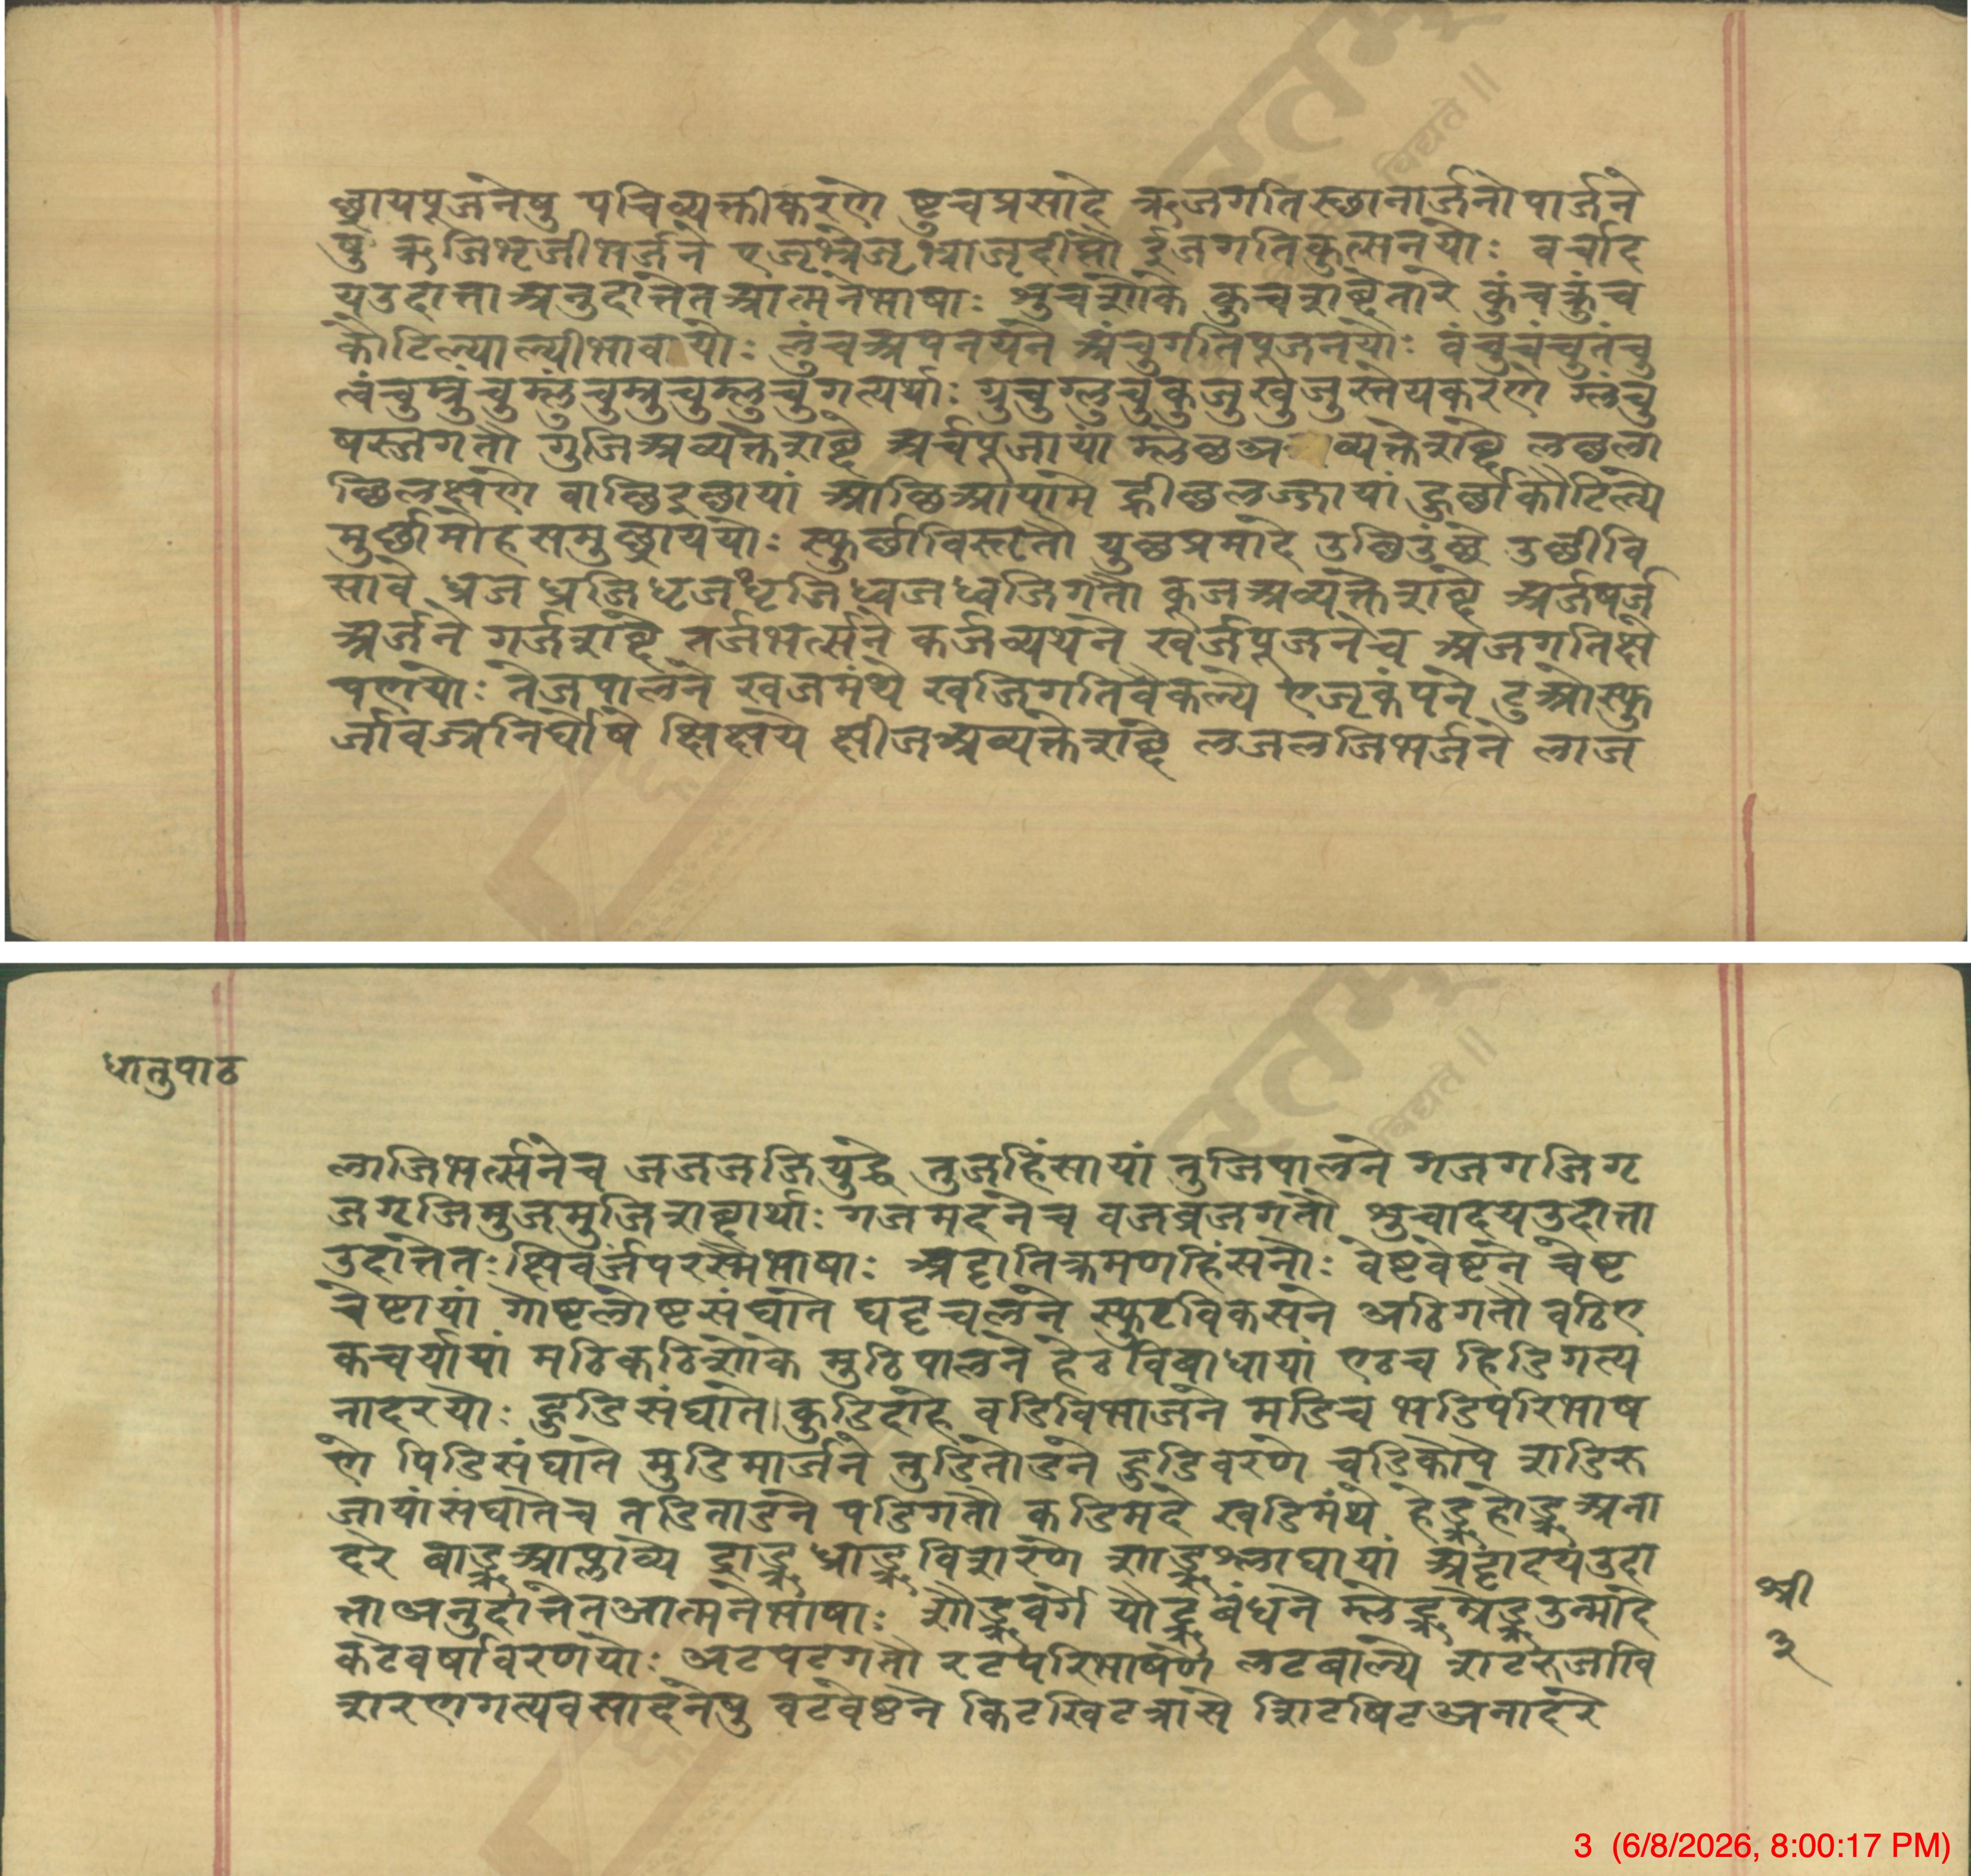 छ्रायपूजनेषु पचिव्यक्तीकरणे ष्टुचप्रसादे ऋजगतिस्छानार्जनोपार्जने
षु ऋजिभृजीभर्जने एजृभ्रेजृभ्राजृदीप्तौ ईजगतिकुत्सनयोः वर्चाद
यउदात्ताअनुदात्तेतआत्मनेभाषाः शुचशोके कुचशब्देतारे कुंचक्रुंच
कौटिल्याल्पीभावयोः लुंचअपनयने अंचुगतिपूजनयोः वंचुचंचुतंचु
त्वंचुम्रुंचुम्लुंचुम्रुचुम्लुचुगत्यर्थाः ग्रुचुग्लुचुकुजुखुजुस्तेयकरणे ग्लुंचु
षस्जगतौ गुजिअव्यक्तशब्दे अर्चपूजायां म्लेछअव्यक्तेशब्दे लछला
छिलक्षणे वाछिइछायां आछिआयामे ह्रीछलज्जायां हुर्छाकौटिल्ये
मुर्छामोहसमुछ्राययोः स्फुर्छाविस्तृतौ युछप्रमादे उछिउंछे उछीवि
सावे ध्रजध्रजिधृजधृजिध्वजध्वजिगतौ कूजअव्यक्तेशब्दे अर्जषर्ज
अर्जने गर्जशब्दे तर्जभर्त्सने कर्जव्यथने खर्जपूजनेच अजगतिक्षे
पणयोः तेजपालने खजमंथे खजिगतिवैकल्ये एजृकंपने टुओस्फु
र्जावज्रनिर्घोषे क्षिक्षये क्षीजअव्यक्तेशब्दे लजलजिभर्जने लाज
धातुपाठ
लाजिभर्त्सनेच जजजजियुद्धे तुजहिंसायां तुजिपालने गजगजिगृ
जगृजिमुजमुजिशब्दार्थाः गजमदनेच वजव्रजगतौ शुचादयउदात्ता
उदात्तेतः क्षिवर्जंपरस्मैभाषाः अट्टातिक्रमणहिंसनोः वेष्टवेष्टने चेष्ट
चेष्टायां गोष्टलोष्टसंघाते घट्टचलने स्फुटविकसने अठिगतौ वठिए
कचर्यायां मठिकठिशोके मुठिपालने हेठविबाधायां एठच हिडिगत्य
नादरयोः हुडिसंघाते। कुडिदाहे वडिविभाजने मडिच भडिपरिभाष
णे पिडिसंघाते मुडिमार्जने तुडितोडने हुडिवरणे चडिकोपे शडिरु
जायांसंघातेच तडिताडने पडिगतौ कडिमदे खडिमंथे हेडृहोडृअना
दरे बाडृआप्लाव्ये द्राडृध्राडृविशरणे शाडृश्लाघायां अट्टादयउदा
त्ताअनुदात्तेतआत्मनेभाषाः शौडृवर्गे यौडृबंधने म्लेडृम्रेडृउन्मादे
कटेवर्षावरणयोः अटपटगतौ रटपरिभाषणे लटबाल्ये शटरुजावि
शरणगत्यवसादनेषु वटवेष्ठने किटखिटत्रासे शिटषिटअनादरे
श्री
३
3 (6/8/2026, 8:00:17 PM)